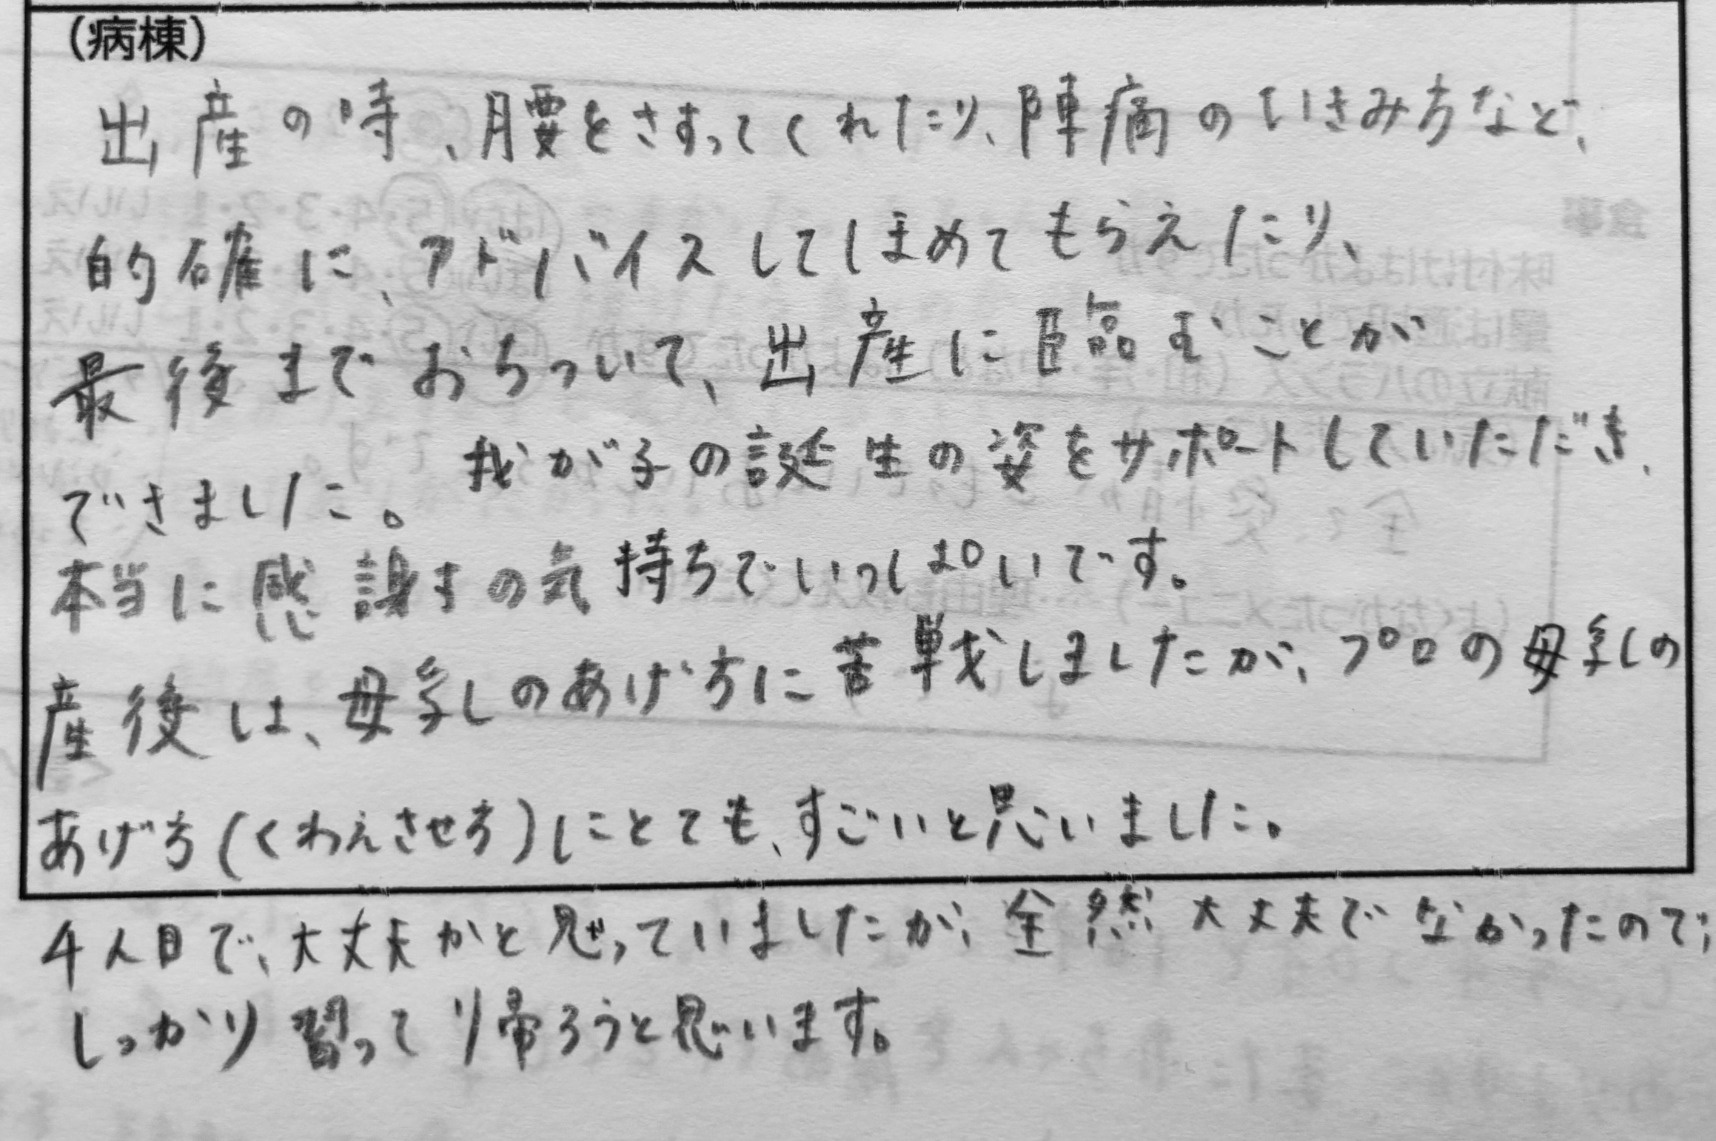 (病棟)
出産の時、腰をさすってくれたり、陣痛のいきみ方など、
的確に、アドバイスしてしほめてもらえたり、
最後までおちついて、出産に臨むことが
できました。我が子の誕生の姿をサポートしていただき、
本当に感謝すの気持ちでいっぱいです。
産後は、母乳のあげ方に苦戦しましたが、プロの母乳の
あげ方(くわえさせ方)にとても、すごいと思いました。
4人目で、大丈夫かと思っていましたが、全然大丈夫でなかったので、
しっかり習って帰ろうと思います。